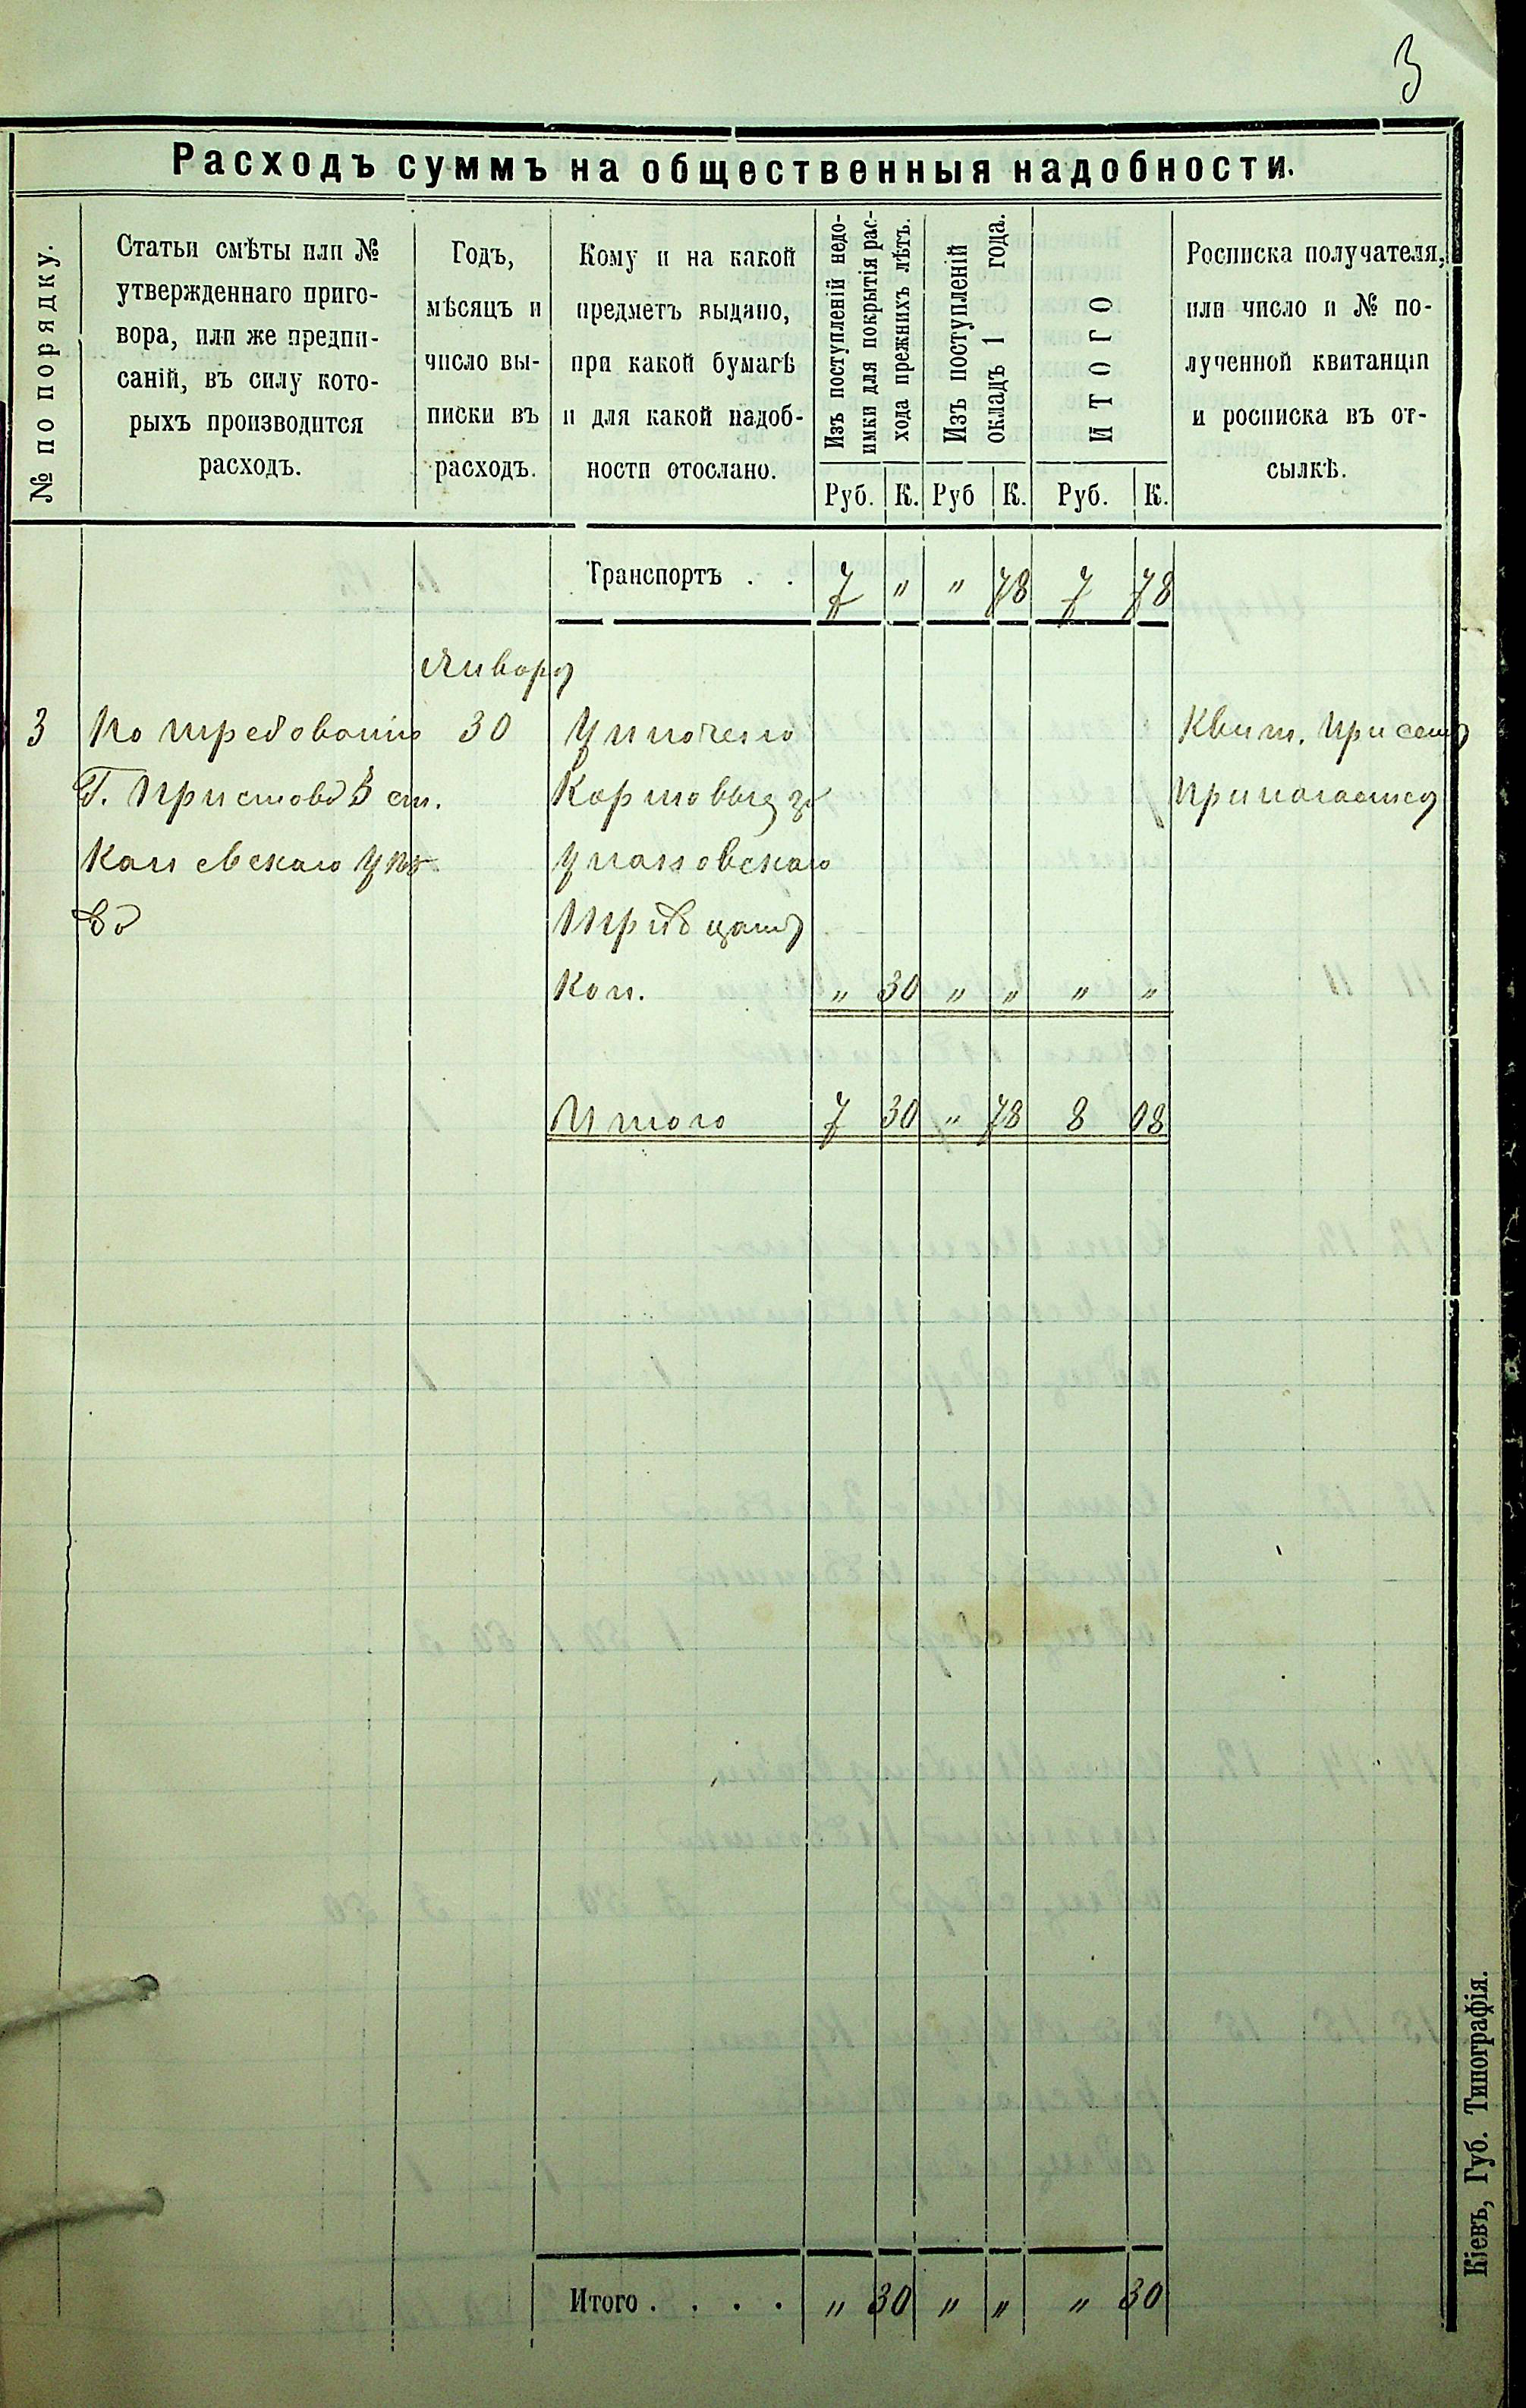 3
Расходъ суммъ на общественныя надобности.
№ по порядку.
Статьи смѣты или №
утвержденнаго приго-
вора, или же предпи-
саній, въ силу кото-
рыхъ производится
расходъ.
Годъ,
мѣсяцъ и
число вы-
писки въ
расходъ.
Кому и на какой
предметъ выдано,
при какой бумагѣ
и для какой надоб-
ности отослано.
Изъ поступленій недо-
имки для покрытія рас-
хода прежнихъ лѣтъ.
Изъ поступленій
окладъ 1 года.
ИТОГО
Росписка получателя,
или число и № по-
лученной квитанціи
и росписка въ от-
сылкѣ.
Руб. К. Руб К. Руб. К.
Транспортъ . . 7 " " 78 7 78
Января
3 По требованію 30 Уплочено Квит. при семъ
Г. Пристава 3 ст. Кормовыхъ прилогается
Каневскаго уѣз-
да
Тридцать
Коп. " 30 " " " "
Итого 7 30 " 78 8 08
Итого . . . . " 30 " " " 30
Кіевъ, Губ. Типографія.